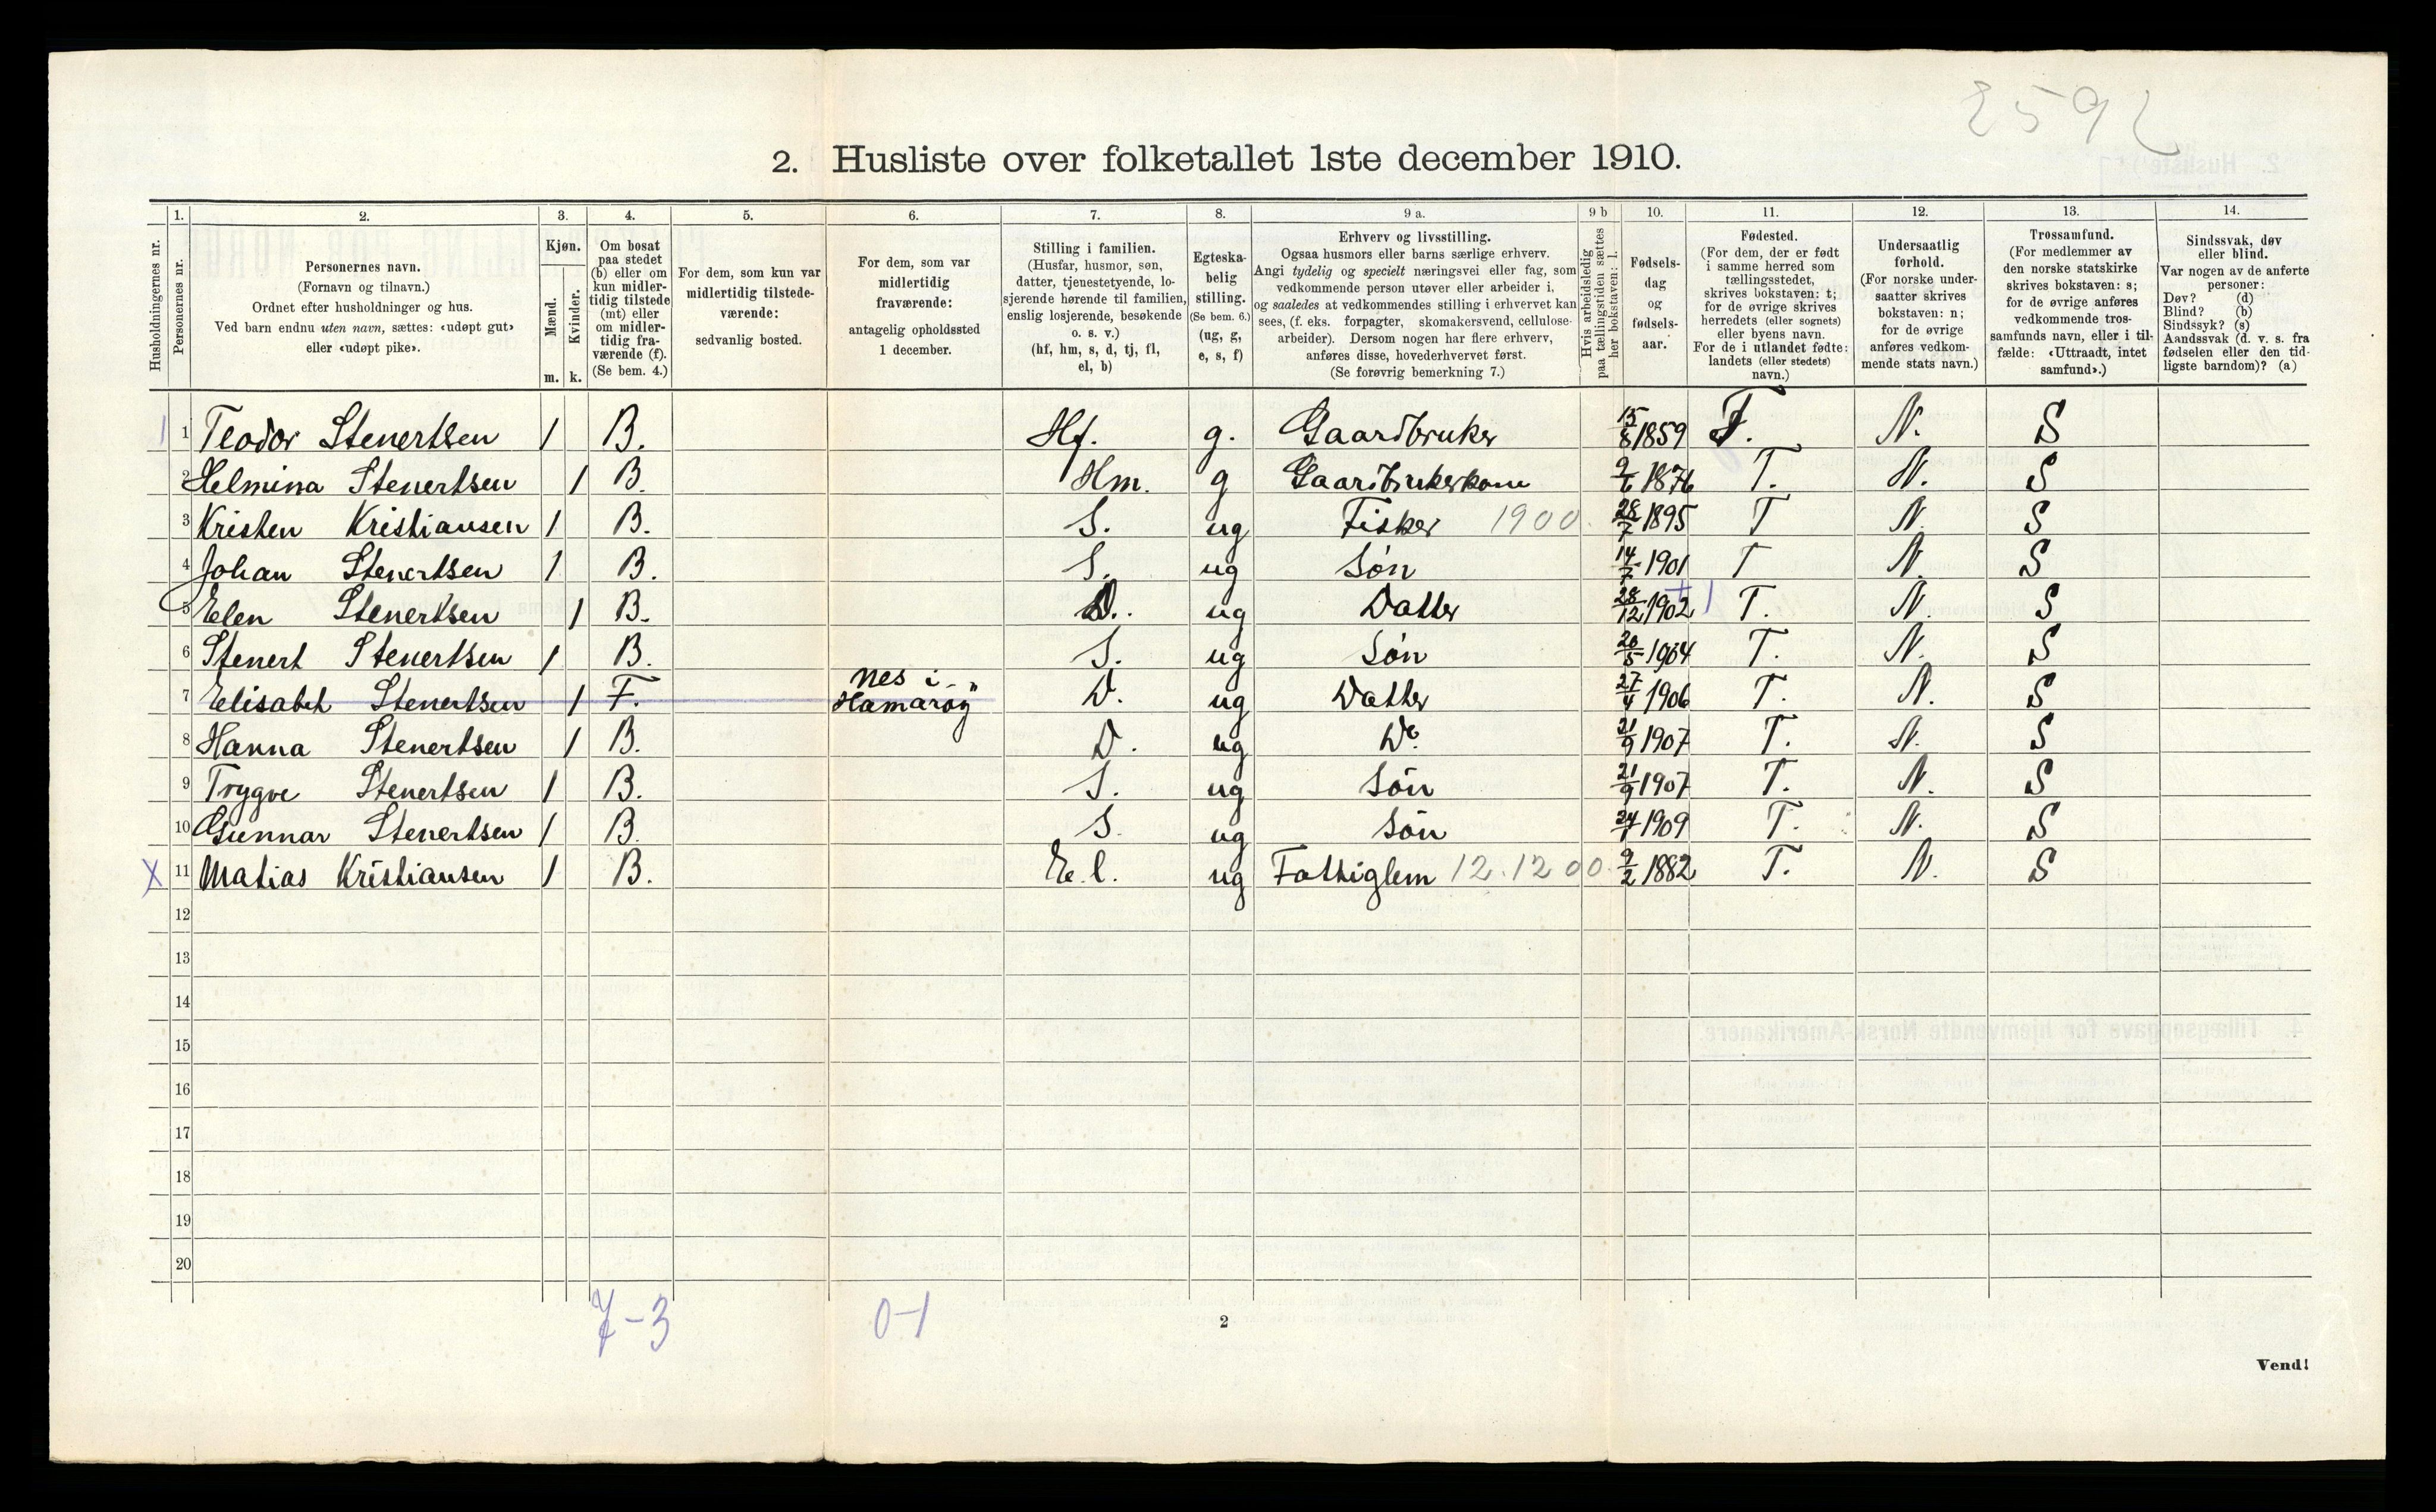 2592
2. Husliste over folketallet 1ste december 1910.
Husholdningernes nr.
1.
Personernes nr.
2.
Personernes navn.
(Fornavn og tilnavn.)
Ordnet efter husholdninger og hus.
Ved barn endnu uten navn, sættes: «udøpt gut»
eller «udøpt pike».
3.
Kjøn.
Mænd.
Kvinder.
m. k.
4.
Om bosat
paa stedet
(b) eller om
kun midler-
tidig tilstede
(mt) eller
om midler-
tidig fra-
værende (f).
(Se bem. 4.)
5.
For dem, som kun var
midlertidig tilstede-
værende:
sedvanlig bosted.
6.
For dem, som var
midlertidig
fraværende:
antagelig opholdssted
1 december.
7.
Stilling i familien.
(Husfar, husmor, søn,
datter, tjenestetyende, lo-
sjerende hørende til familien,
enslig losjerende, besøkende
o. s. v.)
(hf, hm, s, d, tj, fl,
el, b)
8.
Egteska-
belig
stilling.
(Se bem. 6.)
(ug, g,
e, s, f)
9 a.
Erhverv og livsstilling.
Ogsaa husmors eller barns særlige erhverv.
Angi tydelig og specielt næringsvei eller fag, som
vedkommende person utøver eller arbeider i,
og saaledes at vedkommendes stilling i erhvervet kan
sees, (f. eks. forpagter, skomakersvend, cellulose-
arbeider). Dersom nogen har flere erhverv,
anføres disse, hovederhvervet først.
(Se forøvrig bemerkning 7.)
9 b
Hvis arbeidsledig
paa tællingstiden sættes
her bokstaven: l.
10.
Fødsels-
dag
og
fødsels-
aar.
11.
Fødested.
(For dem, der er født
i samme herred som
tællingsstedet,
skrives bokstaven: t;
for de øvrige skrives
herredets (eller sognets)
eller byens navn.
For de i utlandet fødte:
landets (eller stedets)
navn.)
12.
Undersaatlig
forhold.
(For norske under-
saatter skrives
bokstaven: n;
for de øvrige
anføres vedkom-
mende stats navn.)
13.
Trossamfund.
(For medlemmer av
den norske statskirke
skrives bokstaven: s;
for de øvrige anføres
vedkommende tros-
samfunds navn, eller i til-
fælde: «Uttraadt, intet
samfund».)
14.
Sindssvak, døv
eller blind.
Var nogen av de anførte
personer:
Døv? (d)
Blind? (b)
Sindssyk? (s)
Aandssvak (d. v. s. fra
fødselen eller den tid-
ligste barndom)? (a)
1 1 Teodor Stenertsen 1 B. Hf. g. Gaardbruker 15/8 1859 T. N. S
2 Helmina Stenertsen 1 B. Hm. g Gaardbrukerkone 9/6 1876 T. N. S
3 Kristen Kristiansen 1 B. S. ug Fisker 1900. 28/7 1895 T N. S
4 Johan Stenertsen 1 B. S. ug Søn 14/7 1901 T N. S
5 Elen Stenertsen 1 B. D. ug Datter 28/12 1902 T. N. S
6 Stenert Stenertsen 1 B. S. ug Søn 20/5 1904 T. N. S
7 Elisabet Stenertsen 1 F. Nes i Hamarøy D. ug Datter 27/4 1906 T. N. S
8 Hanna Stenertsen 1 B. D. ug Do. 21/9 1907 T. N. S
9 Trygve Stenertsen 1 B. S. ug Søn 21/9 1907 T. N. S
10 Gunnar Stenertsen 1 B. S. ug Søn 24/1 1909 T. N. S
X 11 Matias Kristiansen 1 B. E.l. ug Fattiglem 12.12 00 9/2 1882 T. N. S
12
13
14
15
16
17
18
19
20
7-3 0-1
2
Vend!